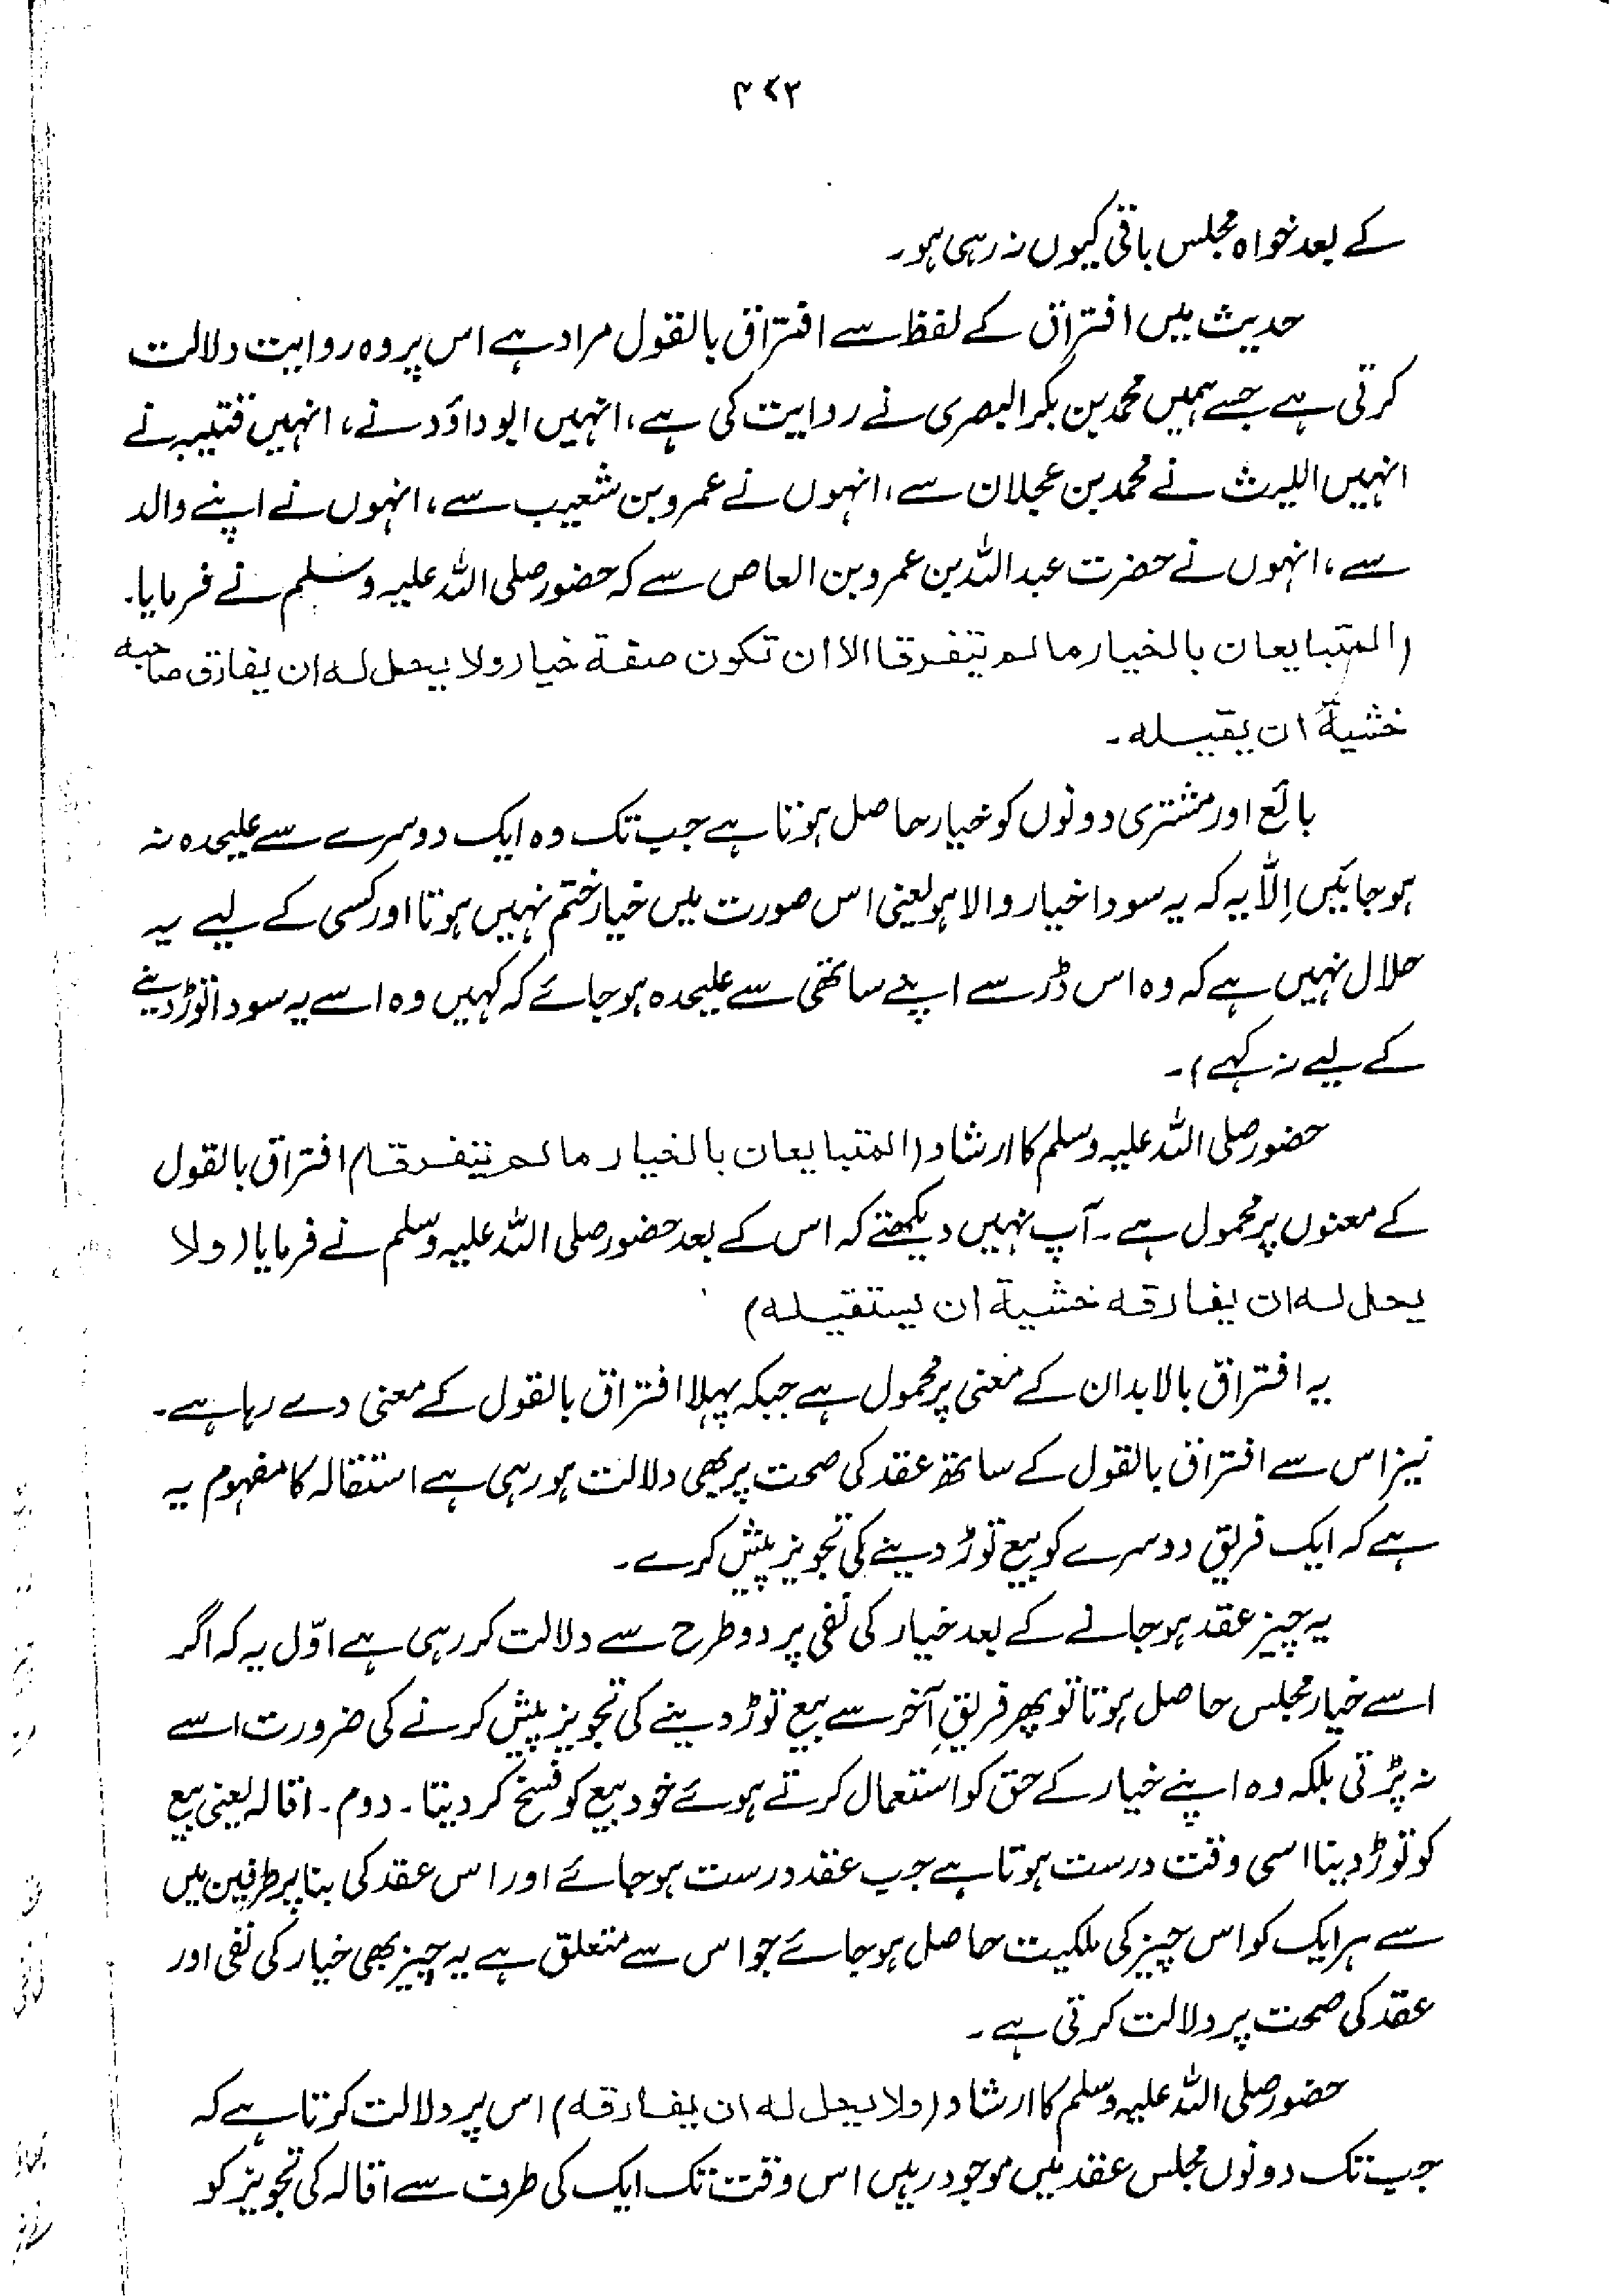 ۴۷۲
کے بعد خواہ مجلس باقی کیوں نہ رہی ہو۔
حدیث میں افتراق کے لفظ سے افتراق بالقول مراد ہے اس پر وہ روایت دلالت
کرتی ہے جسے ہمیں محمد بن بکر البصری نے روایت کی ہے، انہیں ابوداؤد نے، انہیں قتیبہ نے
انہیں اللیث نے محمد بن عجلان سے، انہوں نے عمرو بن شعیب سے، انہوں نے اپنے والد
سے، انہوں نے حضرت عبداللہ بن عمرو بن العاص سے کہ حضور صلی اللہ علیہ وسلم نے فرمایا۔
(المتبایعان بالخیار مالم یتفرقا الا ان تکون صفقة خیار ولا یحل لہ ان یفارق صاحبہ
خشیة ان یقیلہ۔
بائع اور مشتری دونوں کو خیار حاصل ہوتا ہے جب تک وہ ایک دوسرے سے علیحدہ نہ
ہو جائیں اِلّا یہ کہ یہ سودا خیار والا ہو یعنی اس صورت میں خیار ختم نہیں ہوتا اور کسی کے لیے یہ
حلال نہیں ہے کہ وہ اس ڈر سے اپنے ساتھی سے علیحدہ ہو جائے کہ کہیں وہ اسے یہ سودا توڑ دینے
کے لیے نہ کہے)۔
حضور صلی اللہ علیہ وسلم کا ارشاد (المتبایعان بالخیار مالم یتفرقا) افتراق بالقول
کے معنوں پر محمول ہے۔ آپ نہیں دیکھتے کہ اس کے بعد حضور صلی اللہ علیہ وسلم نے فرمایا (ولا
یحل لہ ان یفارقہ خشیة ان یستقیلہ)
یہ افتراق بالابدان کے معنی پر محمول ہے جبکہ پہلا افتراق بالقول کے معنی دے رہا ہے۔
نیز اس سے افتراق بالقول کے ساتھ عقد کی صحت پر بھی دلالت ہو رہی ہے استقالہ کا مفہوم یہ
ہے کہ ایک فریق دوسرے کو بیع توڑ دینے کی تجویز پیش کرے۔
یہ چیز عقد ہو جانے کے بعد خیار کی نفی پر دو طرح سے دلالت کر رہی ہے اوّل یہ کہ اگر
اسے خیار مجلس حاصل ہوتا تو پھر فریقِ آخر سے بیع توڑ دینے کی تجویز پیش کرنے کی ضرورت اسے
نہ پڑتی بلکہ وہ اپنے خیار کے حق کو استعمال کرتے ہوئے خود بیع کو فسخ کر دیتا۔ دوم۔ اقالہ یعنی بیع
کو توڑ دینا اسی وقت درست ہوتا ہے جب عقد درست ہو جائے اور اس عقد کی بنا پر طرفین میں
سے ہر ایک کو اس چیز کی ملکیت حاصل ہو جائے جو اس سے متعلق ہے یہ چیز بھی خیار کی نفی اور
عقد کی صحت پر دلالت کرتی ہے۔
حضور صلی اللہ علیہ وسلم کا ارشاد (ولا یحل لہ ان یفارقہ) اس پر دلالت کرتا ہے کہ
جب تک دونوں مجلس عقد میں موجود رہیں اس وقت تک ایک کی طرف سے اقالہ کی تجویز کو